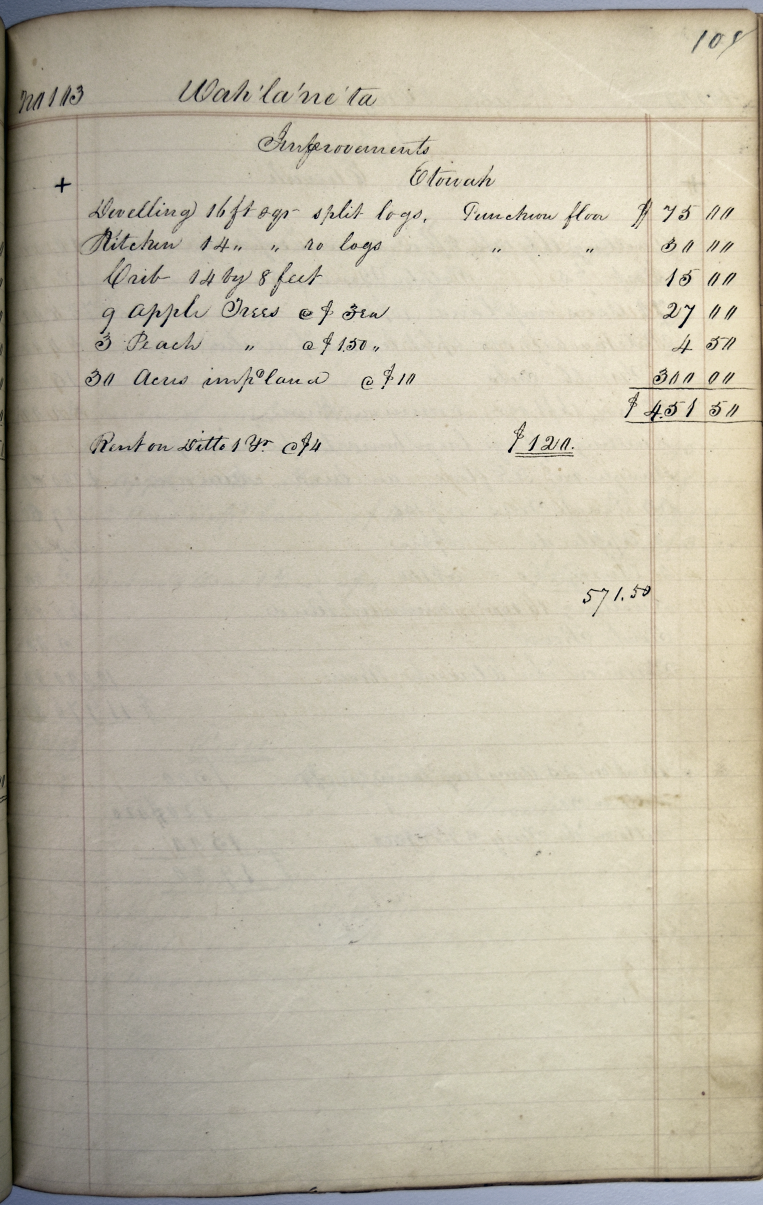 109
No 113 Wah'la'ne'ta
Improvements
+ Etowah
Dwelling 16 ft sqr split logs, Puncheon floor $ 75 00
Kitchen 14 " " ro logs " " 30 00
Crib 14 by 8 feet 15 00
9 apple Trees @ $ 3 ea 27 00
3 Peach " @ $ 1.50 " 4 50
30 Acres impd land @ $ 10 300 00
$ 451 50
Rent on Ditto 1 Yr @ $4 $ 120.
571.50